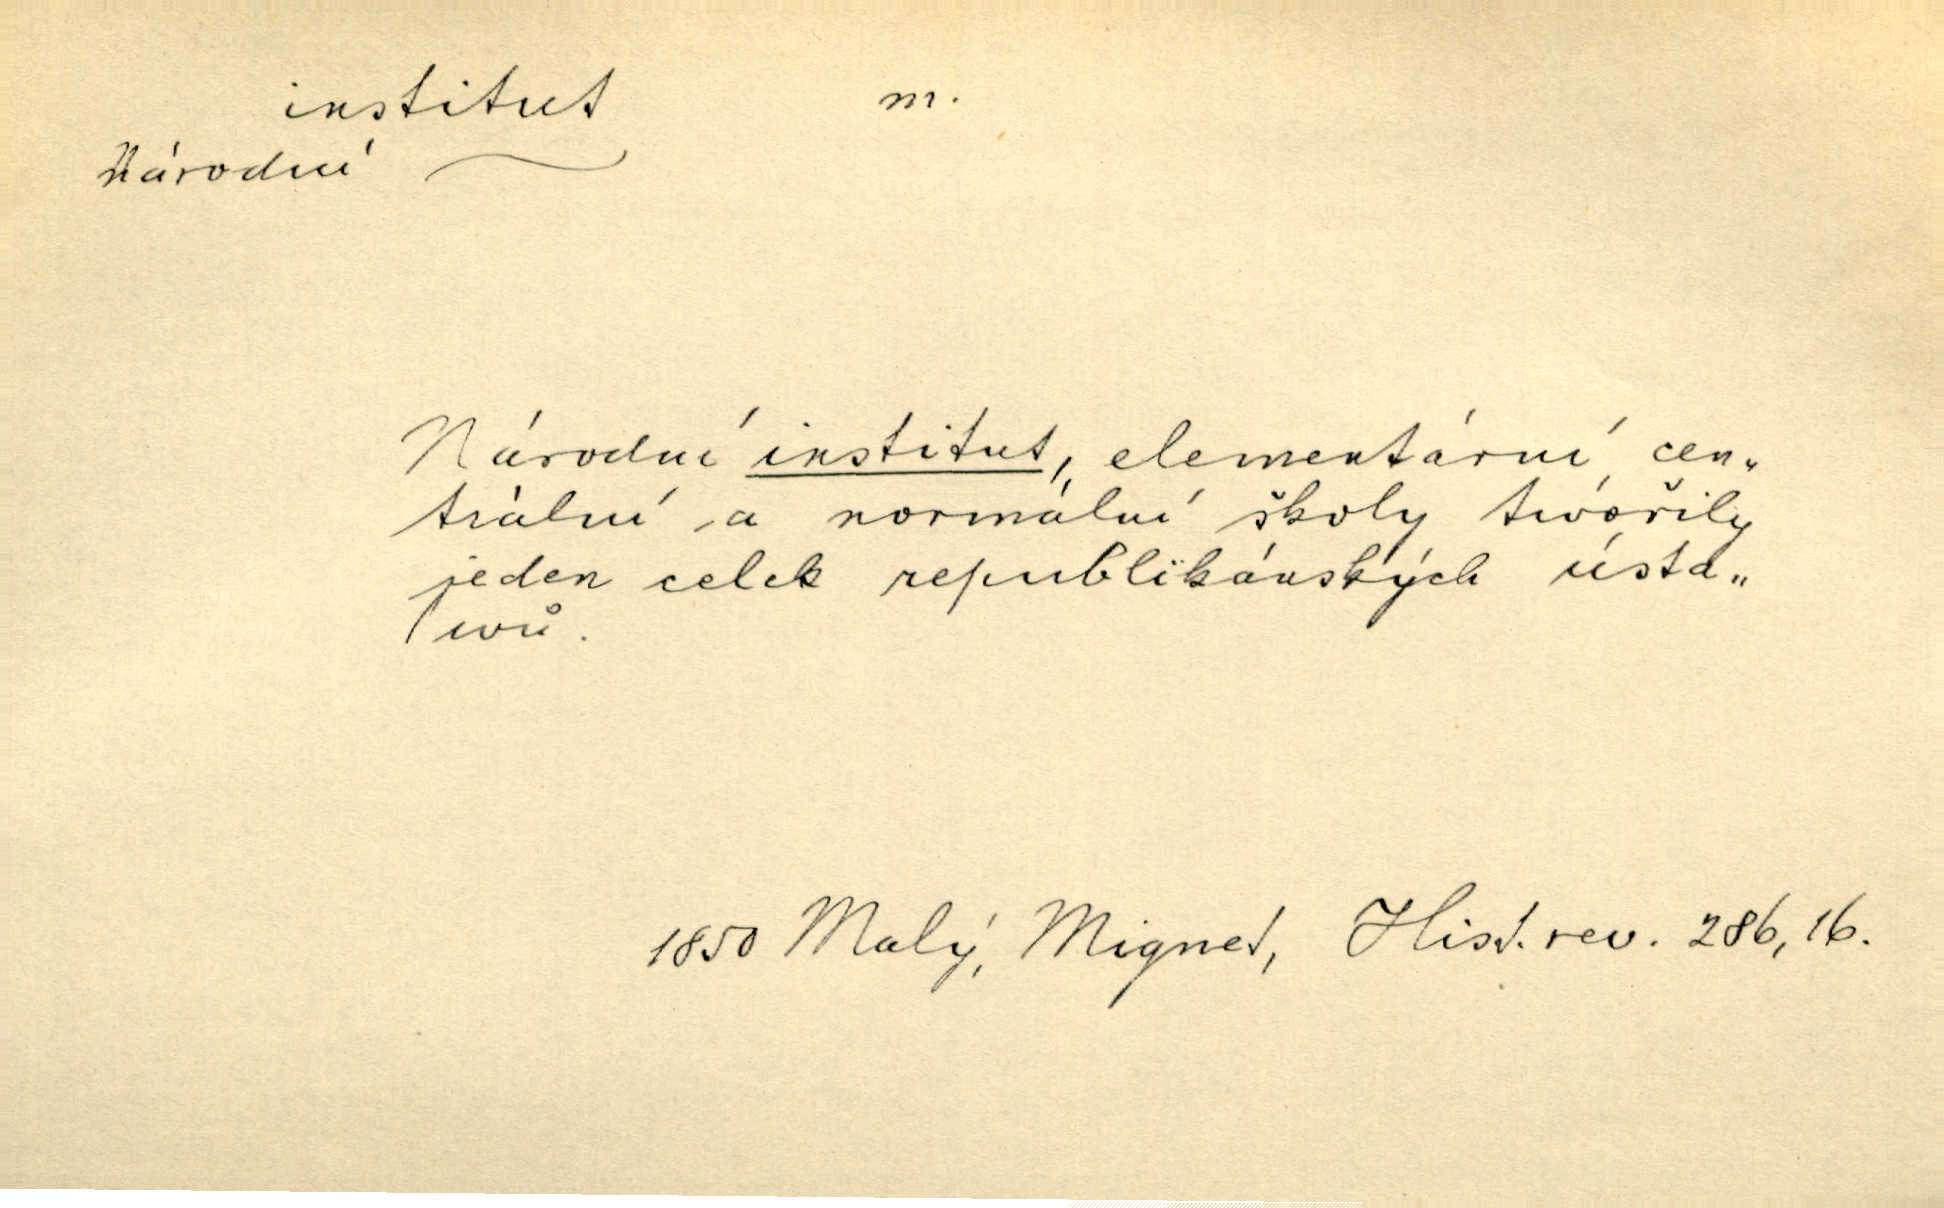 institut m.
Národní ~
Národní institut, elementární, cen„
trální a normální školy twořily
jeden celek republikánských ústa„
wů.
1850 Malý, Mignet, Hist. rev. 286, 16.